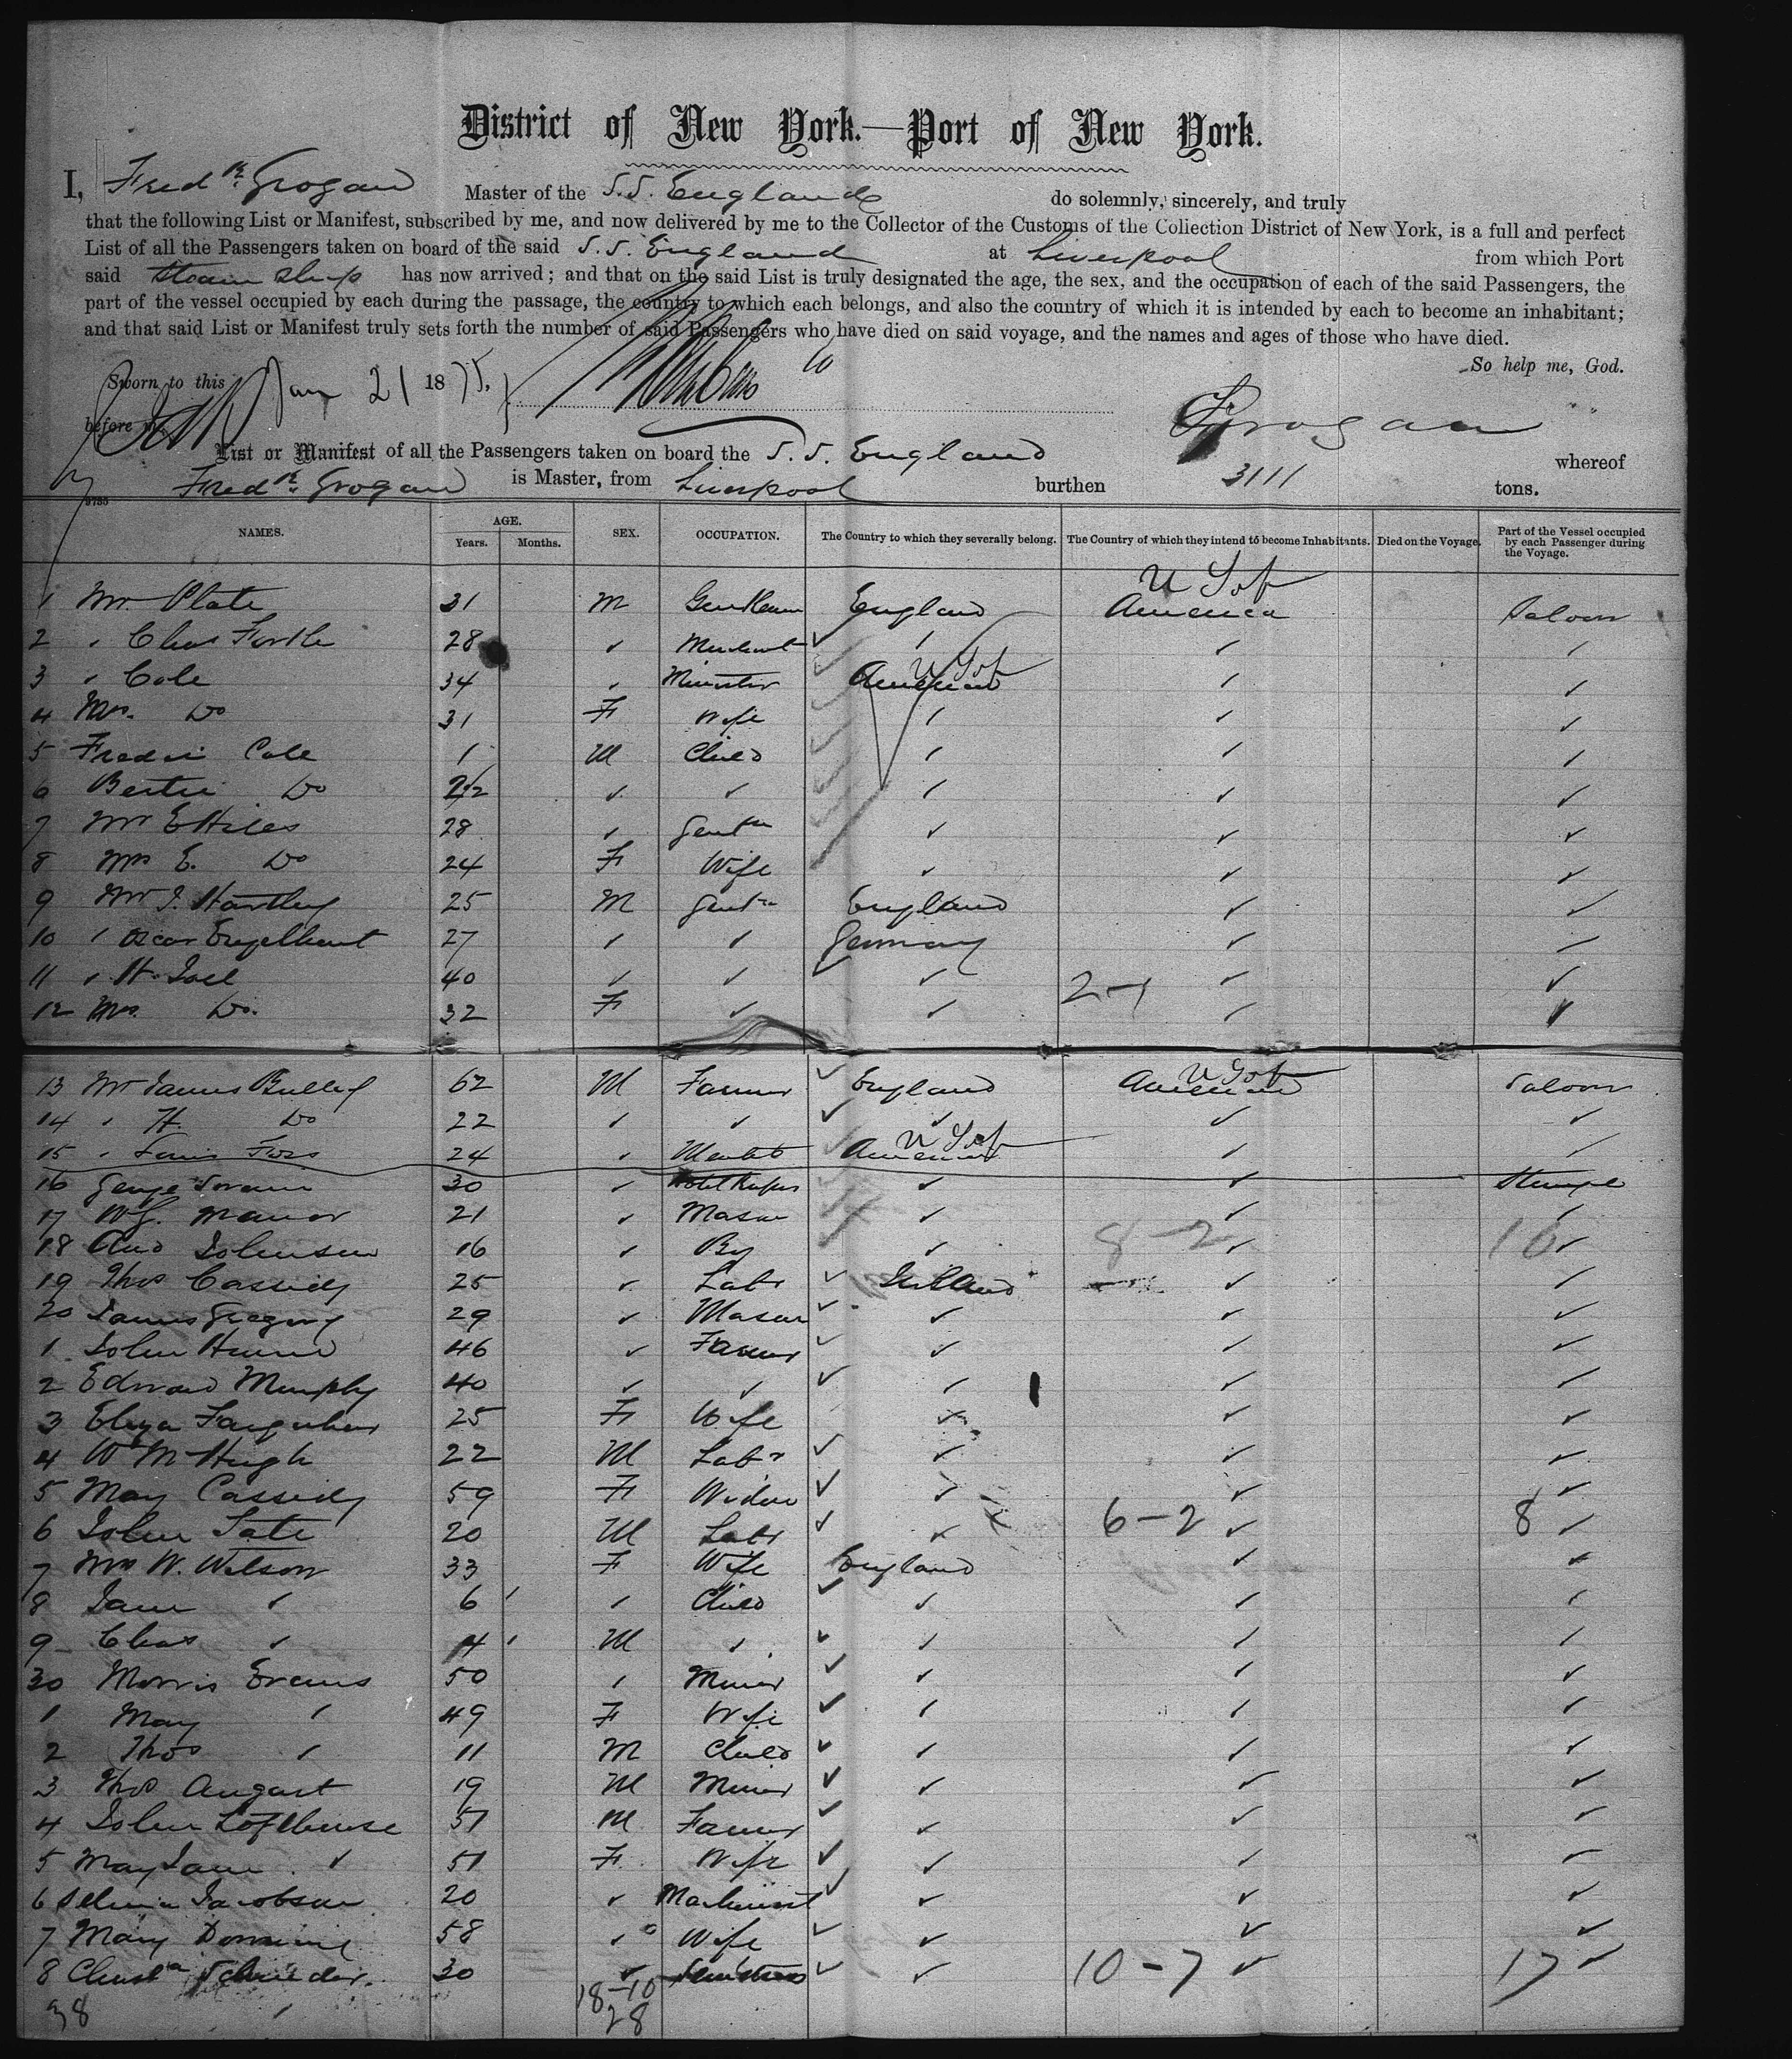 District of New York.—Port of New York.
I, Fredk. Grogan Master of the S.S. England do solemnly, sincerely, and truly
that the following List or Manifest, subscribed by me, and now delivered by me to the Collector of the Customs of the Collection District of New York, is a full and perfect
List of all the Passengers taken on board of the said S.S. England at Liverpool from which Port
said Steam Ship has now arrived; and that on the said List is truly designated the age, the sex, and the occupation of each of the said Passengers, the
part of the vessel occupied by each during the passage, the country to which each belongs, and also the country of which it is intended by each to become an inhabitant;
and that said List or Manifest truly sets forth the number of said Passengers who have died on said voyage, and the names and ages of those who have died.
So help me, God.
Sworn to this Jan 21 1875.
before me
FGrogan
List or Manifest of all the Passengers taken on board the S.S. England whereof
Fredk. Grogan is Master, from Liverpool burthen 3111 tons.
NAMES. AGE. Years. Months. SEX. OCCUPATION. The Country to which they severally belong. The Country of which they intend to become Inhabitants. Died on the Voyage. Part of the Vessel occupied by each Passenger during the Voyage.
1 Mr. Plate 31 M Gentleman England U S of America Saloon
2 " Chas Firth 28 ✓ Merchant
3 " Cole 34 Minister U S of America
4 Mrs. Do 31 F Wife
5 Fredric Cole 1 M Child
6 Bertie Do
7 Mr E Hiles 28 Gentn
8 Mrs E. Do 24 F Wife
9 Mr J. Hartley 25 M Gentn England
10 " Oscar Engelhart 27 Germany
11 " H. Joel 40 2-1
12 Mrs. Do. 32 F
13 Mr James Bulley 62 M Farmer England U S of America Saloon
14 " H. Do 22
15 " 24 U S of America
16 George 30 Steerage
17 W. Manor 21 Mason
18 And Johnson 16 Boy 8-2 10
19 Thos Cassidy 25 Labr Ireland
20 James Gregory 29 Mason
1 John 46 Farmer
2 Edward Murphy 40
3 Eliza Farquhar 25 F Wife
4 W McHugh 22 M Labr
5 Mary Cassidy 59 F Widow
6 John Tate 20 M Labr 6-2 8
7 Mrs W. Wilson 33 F Wife England
8 Jane " 6 Child
9 Chas " 4 M
30 Morris Evans 50 Miner
1 Mary " 49 F Wife
2 Thos " 11 M Child
3 Thos August 19 M Miner
4 John Lofthouse 51 M Farmer
5 Mary Jane " 51 F Wife
6 Jacobson 20
7 Mary 58 Wife
8 Christa Schneider 30 10-7 17
38 18-10
28